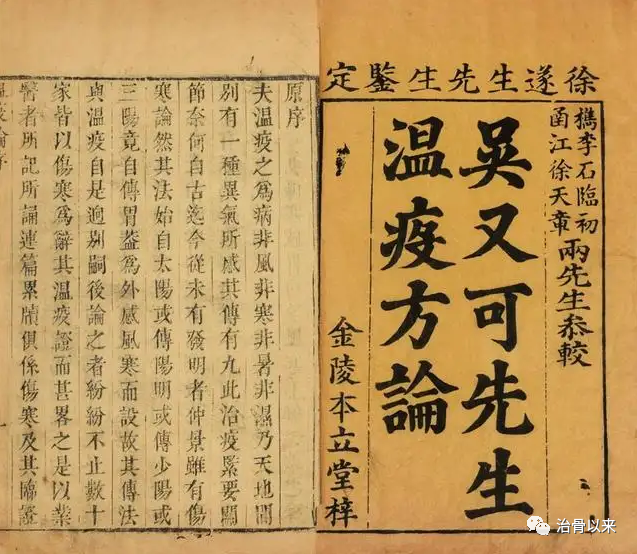 徐遂生先生鑒定
檇李石臨初
甬江徐天章
兩先生叅較
吳又可先生
溫疫方論
金陵本立堂梓
原序
夫温疫之為病非風非寒非暑非濕乃天地間
別有一種異氣所感其傳有九此治疫緊要關
節奈何自古迄今從未有發明者仲景雖有傷
寒論然其法始自太陽或傳陽明或傳少陽或
三陽竟自傳胃葢為外感風寒而設故其傳法
與温疫自是逈别嗣後論之者紛紛不止數十
家皆以傷寒為辭其温疫證而甚畧之是以業
醫者所記所誦連篇累牘俱係傷寒及其臨證
治骨以来